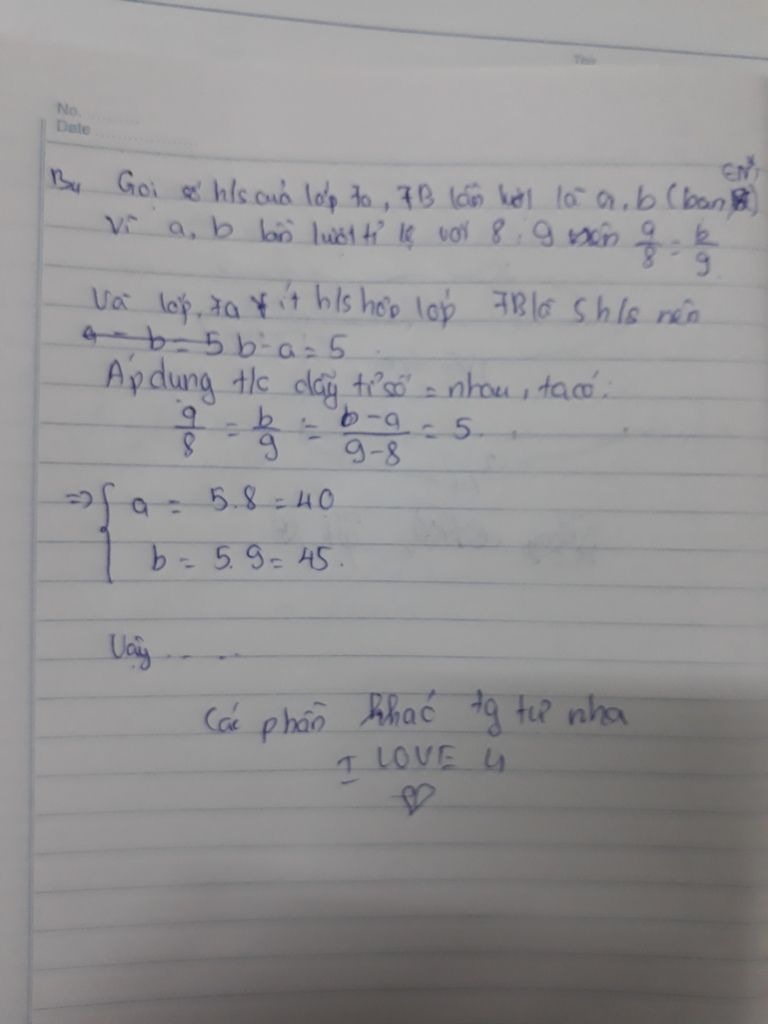 No.
Date
B4 Gọi số h/s của lớp 7a, 7B lần lượt là a, b (bạn)
Vì a, b lần lượt tỉ lệ với 8, 9 nên a/8 = b/9
Và lớp 7a ít h/s hơn lớp 7B là 5 h/s nên
a - b = 5 b - a = 5
Áp dụng t/c dãy tỉ số = nhau, ta có:
a/8 = b/9 = (b-a)/(9-8) = 5.
=> { a = 5.8 = 40
b = 5.9 = 45.
Vậy .....
Các phần khác tg tự nha
I LOVE U
♡